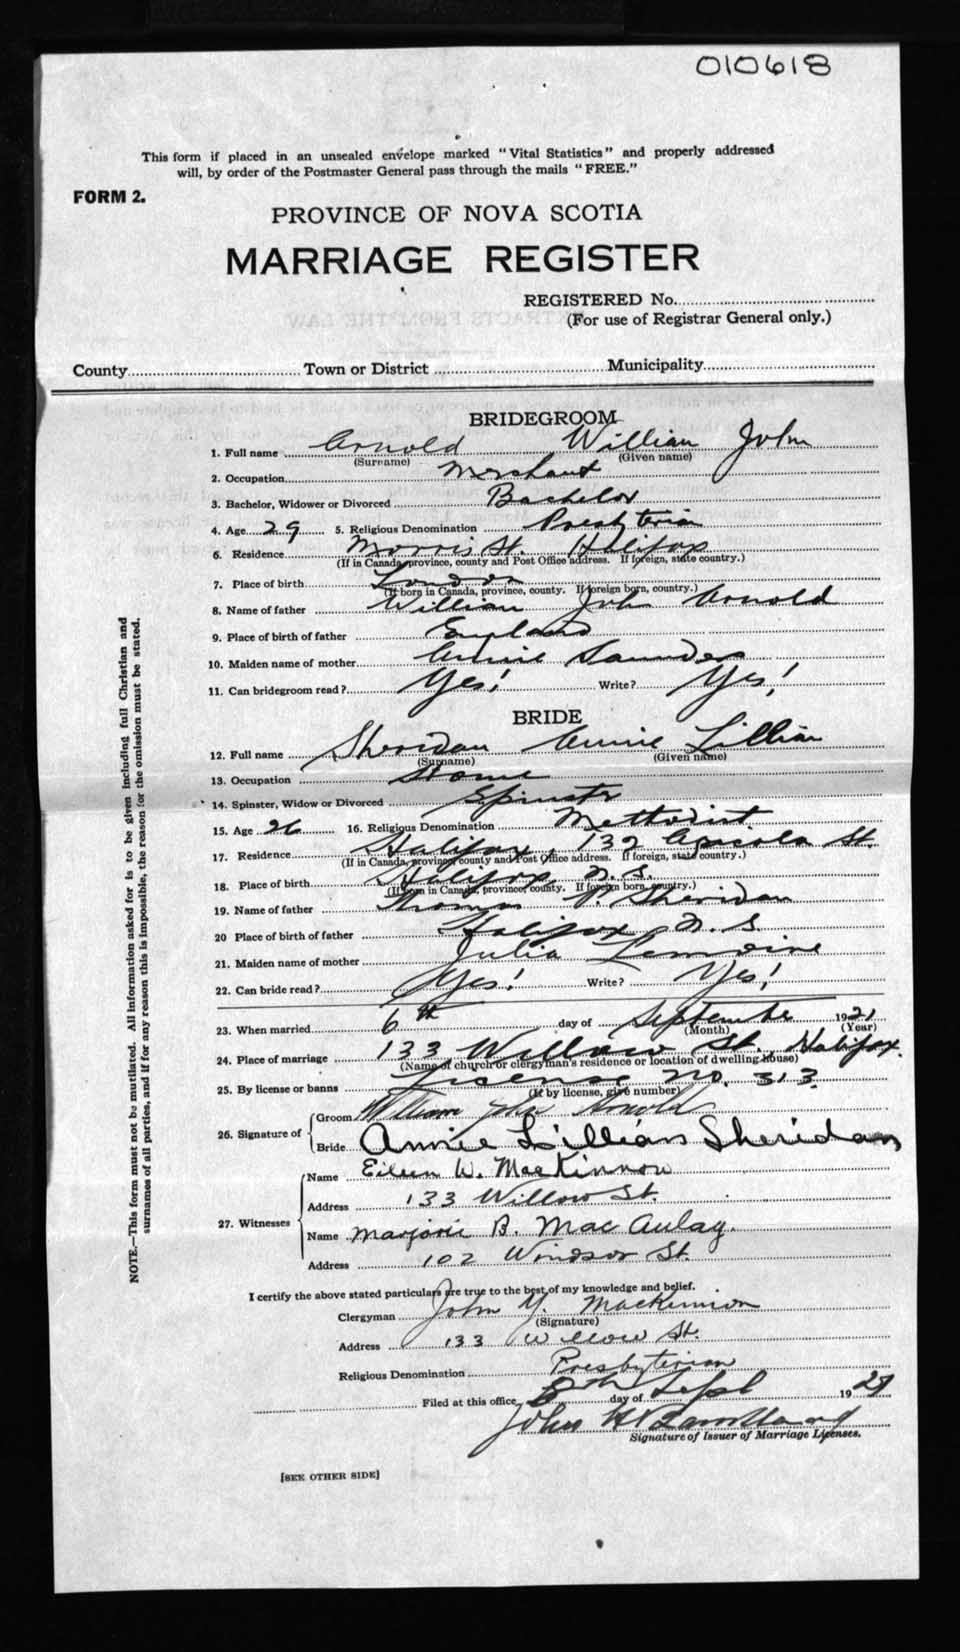 010618
This form if placed in an unsealed envelope marked "Vital Statistics" and properly addressed
will, by order of the Postmaster General pass through the mails "FREE."
FORM 2.
PROVINCE OF NOVA SCOTIA
MARRIAGE REGISTER
REGISTERED No.
(For use of Registrar General only.)
County Town or District Municipality
BRIDEGROOM
1. Full name Arnold William John
(Surname) (Given name)
2. Occupation Merchant
3. Bachelor, Widower or Divorced Bachelor
4. Age 29 5. Religious Denomination Presbyterian
6. Residence Morris St. Halifax
(If in Canada, province, county and Post Office address. If foreign, state country.)
7. Place of birth London
(If born in Canada, province, county. If foreign born, country.)
8. Name of father William John Arnold
9. Place of birth of father England
10. Maiden name of mother Annie Saunders
11. Can bridegroom read? Yes! Write? Yes!
BRIDE
12. Full name Sheridan Annie Lillian
(Surname) (Given name)
13. Occupation Home
14. Spinster, Widow or Divorced Spinster
15. Age 26 16. Religious Denomination Methodist
17. Residence Halifax, 132 Agricola St.
(If in Canada, province, county and Post Office address. If foreign, state country.)
18. Place of birth Halifax, N.S.
(If born in Canada, province, county. If foreign born, country.)
19. Name of father Thomas P. Sheridan
20 Place of birth of father Halifax, N.S.
21. Maiden name of mother Julia Lemoine
22. Can bride read? Yes! Write? Yes!
23. When married 6th day of September 1921
(Month) (Year)
24. Place of marriage 133 Willow St., Halifax.
(Name of church or clergyman's residence or location of dwelling house)
25. By license or banns License No. 313.
(If by license, give number)
26. Signature of Groom William John Arnold
Bride Annie Lillian Sheridan
27. Witnesses Name Eileen W. MacKinnon
Address 133 Willow St.
Name Marjorie B. MacAulay.
Address 102 Windsor St.
I certify the above stated particulars are true to the best of my knowledge and belief.
Clergyman John Y. MacKinnon
(Signature)
Address 133 Willow St.
Religious Denomination Presbyterian
Filed at this office 8th day of Sept 1921
John H
Signature of Issuer of Marriage Licenses.
[SEE OTHER SIDE]
NOTE.—This form must not be mutilated. All information asked for is to be given including full Christian and
surnames of all parties, and if for any reason this is impossible, the reason for the omission must be stated.